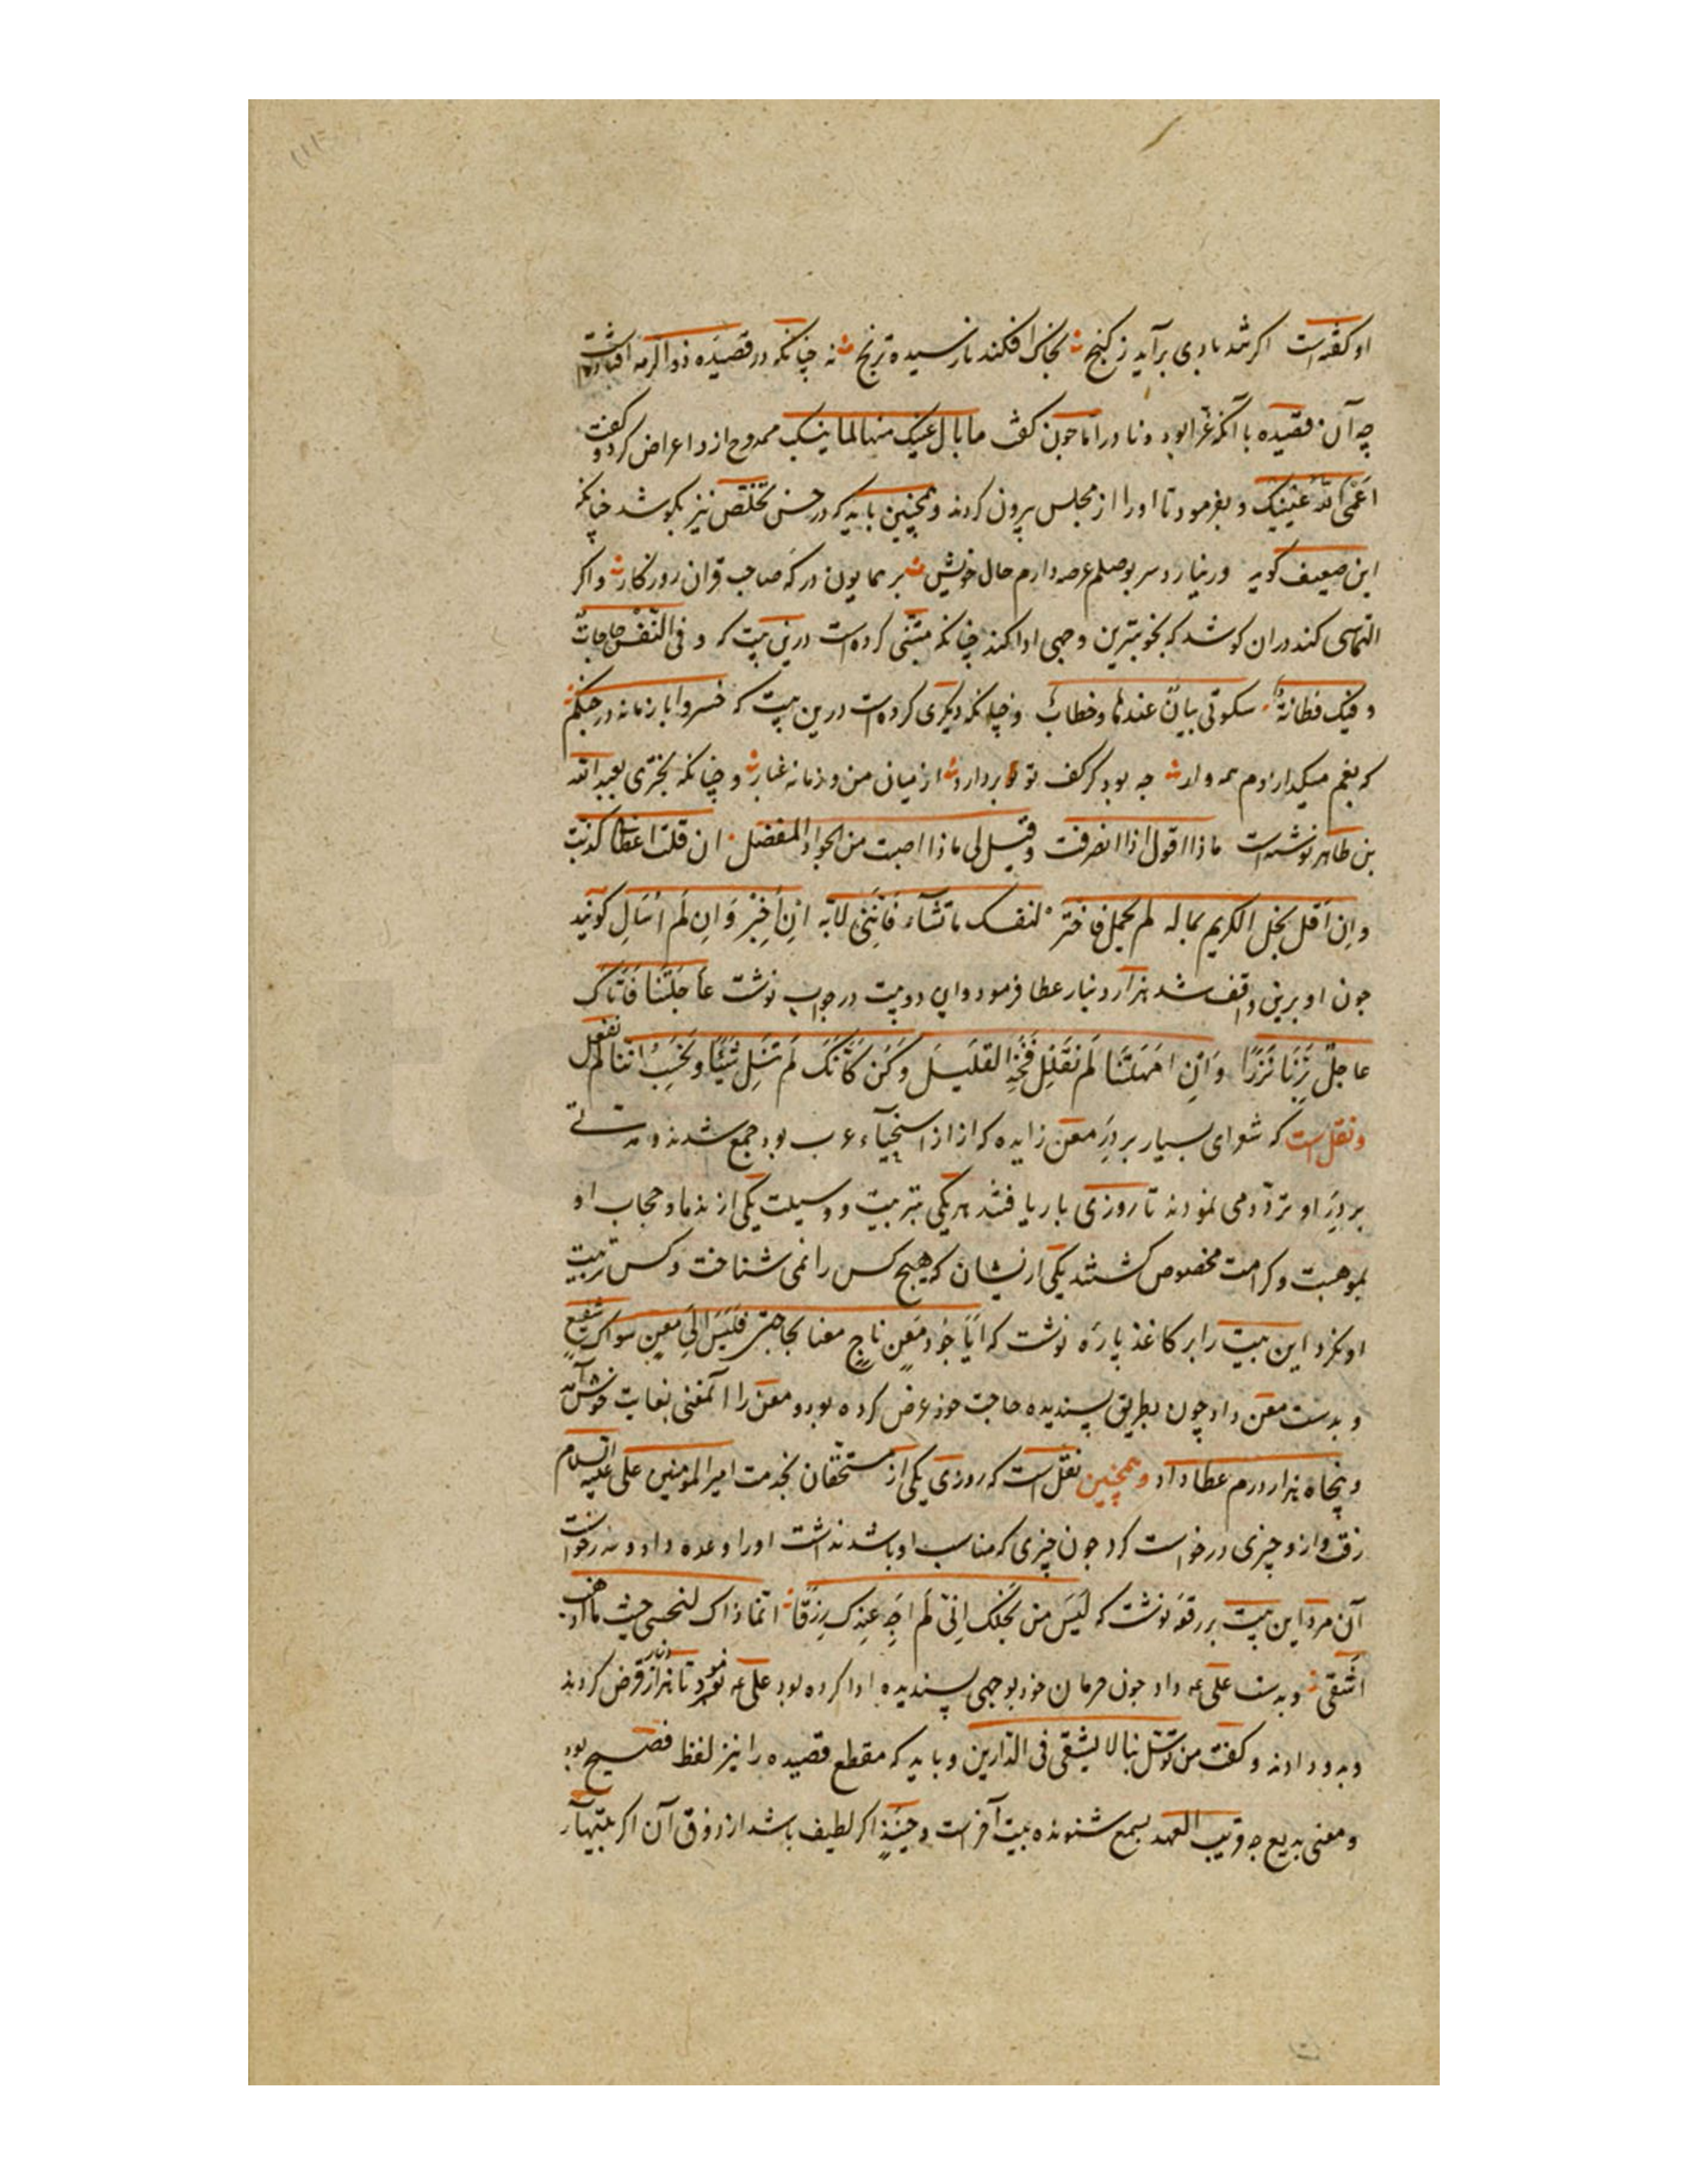 او کفته است اکر تند بادی برآید ز کنج بخاک افکند نارسیده ترنج نه چنانکه در قصیده ذو الرمه افتاده است
چه آن قصیده با آنکه غرا بود و نادر اما چون کفت ما بال عینک منها الما ینسکب ممدوح از و اعراض کرد و کفت
اعمی الله عینیک و بفرمود تا او را از مجلس بیرون کردند و همچنین باید که در حسن تخلص نیز بکوشد چنانکه
این ضعیف کوید ور نیارد سر بوصلم عرصه دارم حال خویش بر همایون درکه صاحب قران روزکار و اکر
التماسی کند در ان کوشد که بخوبترین وجهی ادا کند چنانکه متنبی کرده است درین بیت که و فی النفس حاجات
و فیک فطانة سکوتی بیان عندها و خطاب و چنانکه دیکری کرده است درین بیت که خسروا با زمانه در جنکم
که بغم میکدارزدم همه وار چه بود کر کف تو بر دارد از میان من و زمانه غبار و چنانکه بختری بعبد الله
بن طاهر نوشته است ماذا اقول اذا انصرفت و قیل لی ماذا اصبت من الجواد المفضل ان قلت اعطا کذبت
و ان اقل بخل الکریم بماله لم یجمل فاختر لنفسک ما تشاء فاننی لا بد ان اخبر و ان لم اسال کویند
چون او برین واقف شد هزار دینار عطا فرمود و این دو بیت در جواب نوشت عاجلتنا فاتاک
عاجل برنا نزرا و ان امهلتنا لم نقلل فخذ القلیل و کن کانک لم تنل شیئا و نحسب اننا لم نفعل
و نقل است که شعرای بسیار بر در معن زایده که از از اسخیاء عرب بود جمع شدند و مدتی
بر در او تردد می نمودند تا روزی بار یافتند هر یکی بتربیت و وسیلت یکی از ندما و حجاب او
بموهبت و کرامت مخصوص کشتند یکی ازیشان که هیچ کس را نمی شناخت و کس تربیت
او نکرد این بیت را بر کاغذ پاره نوشت که ایا جود معن ناج معنا بحاجتی فلیس الی معن سواک شفیع
و بدست معن داد چون بطریق پسندیده حاجت خود عرض کرده بود و معن را آنمعنی بغایت خوش آمد
و پنجاه هزار درم عطا داد و همچنین نقل است که روزی یکی از مستحقان بخدمت امیر المومنین علی علیه السلام
رفت و ازو چیزی درخواست کرد چون چیزی که مناسب او باشد نداشت او را وعده داد و عذر خواست
آن مرد این بیت بر رقعه نوشت که لیس من بخلک انی لم اجد عندک رزقا انما ذاک لنحسی حیث ما اذهب
اشقی و بدست علی عه داد چون حرمان خود بوجهی پسندیده ادا کرده بود علی عه فرمود تا هزار دینار قرض کردند
و بدو دادند و کفت من توسل بنا لا یشقی فی الدارین و باید که مقطع قصیده را نیز لفظ فصیح بود
و معنی بدیع چه قریب العهد بسمع شنونده بیت آخر است و حینئذ اکر لطیف باشد از ذوق آن اکر بیتها